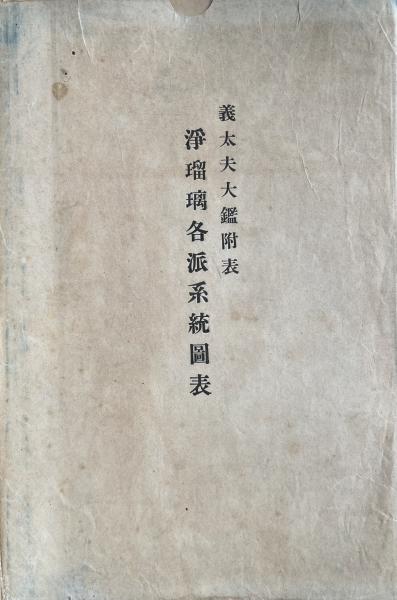 義太夫大鑑附表
淨瑠璃各派系統圖表